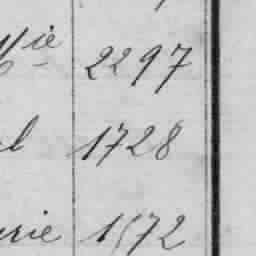 Mie 2297
l 1728
urie 1572